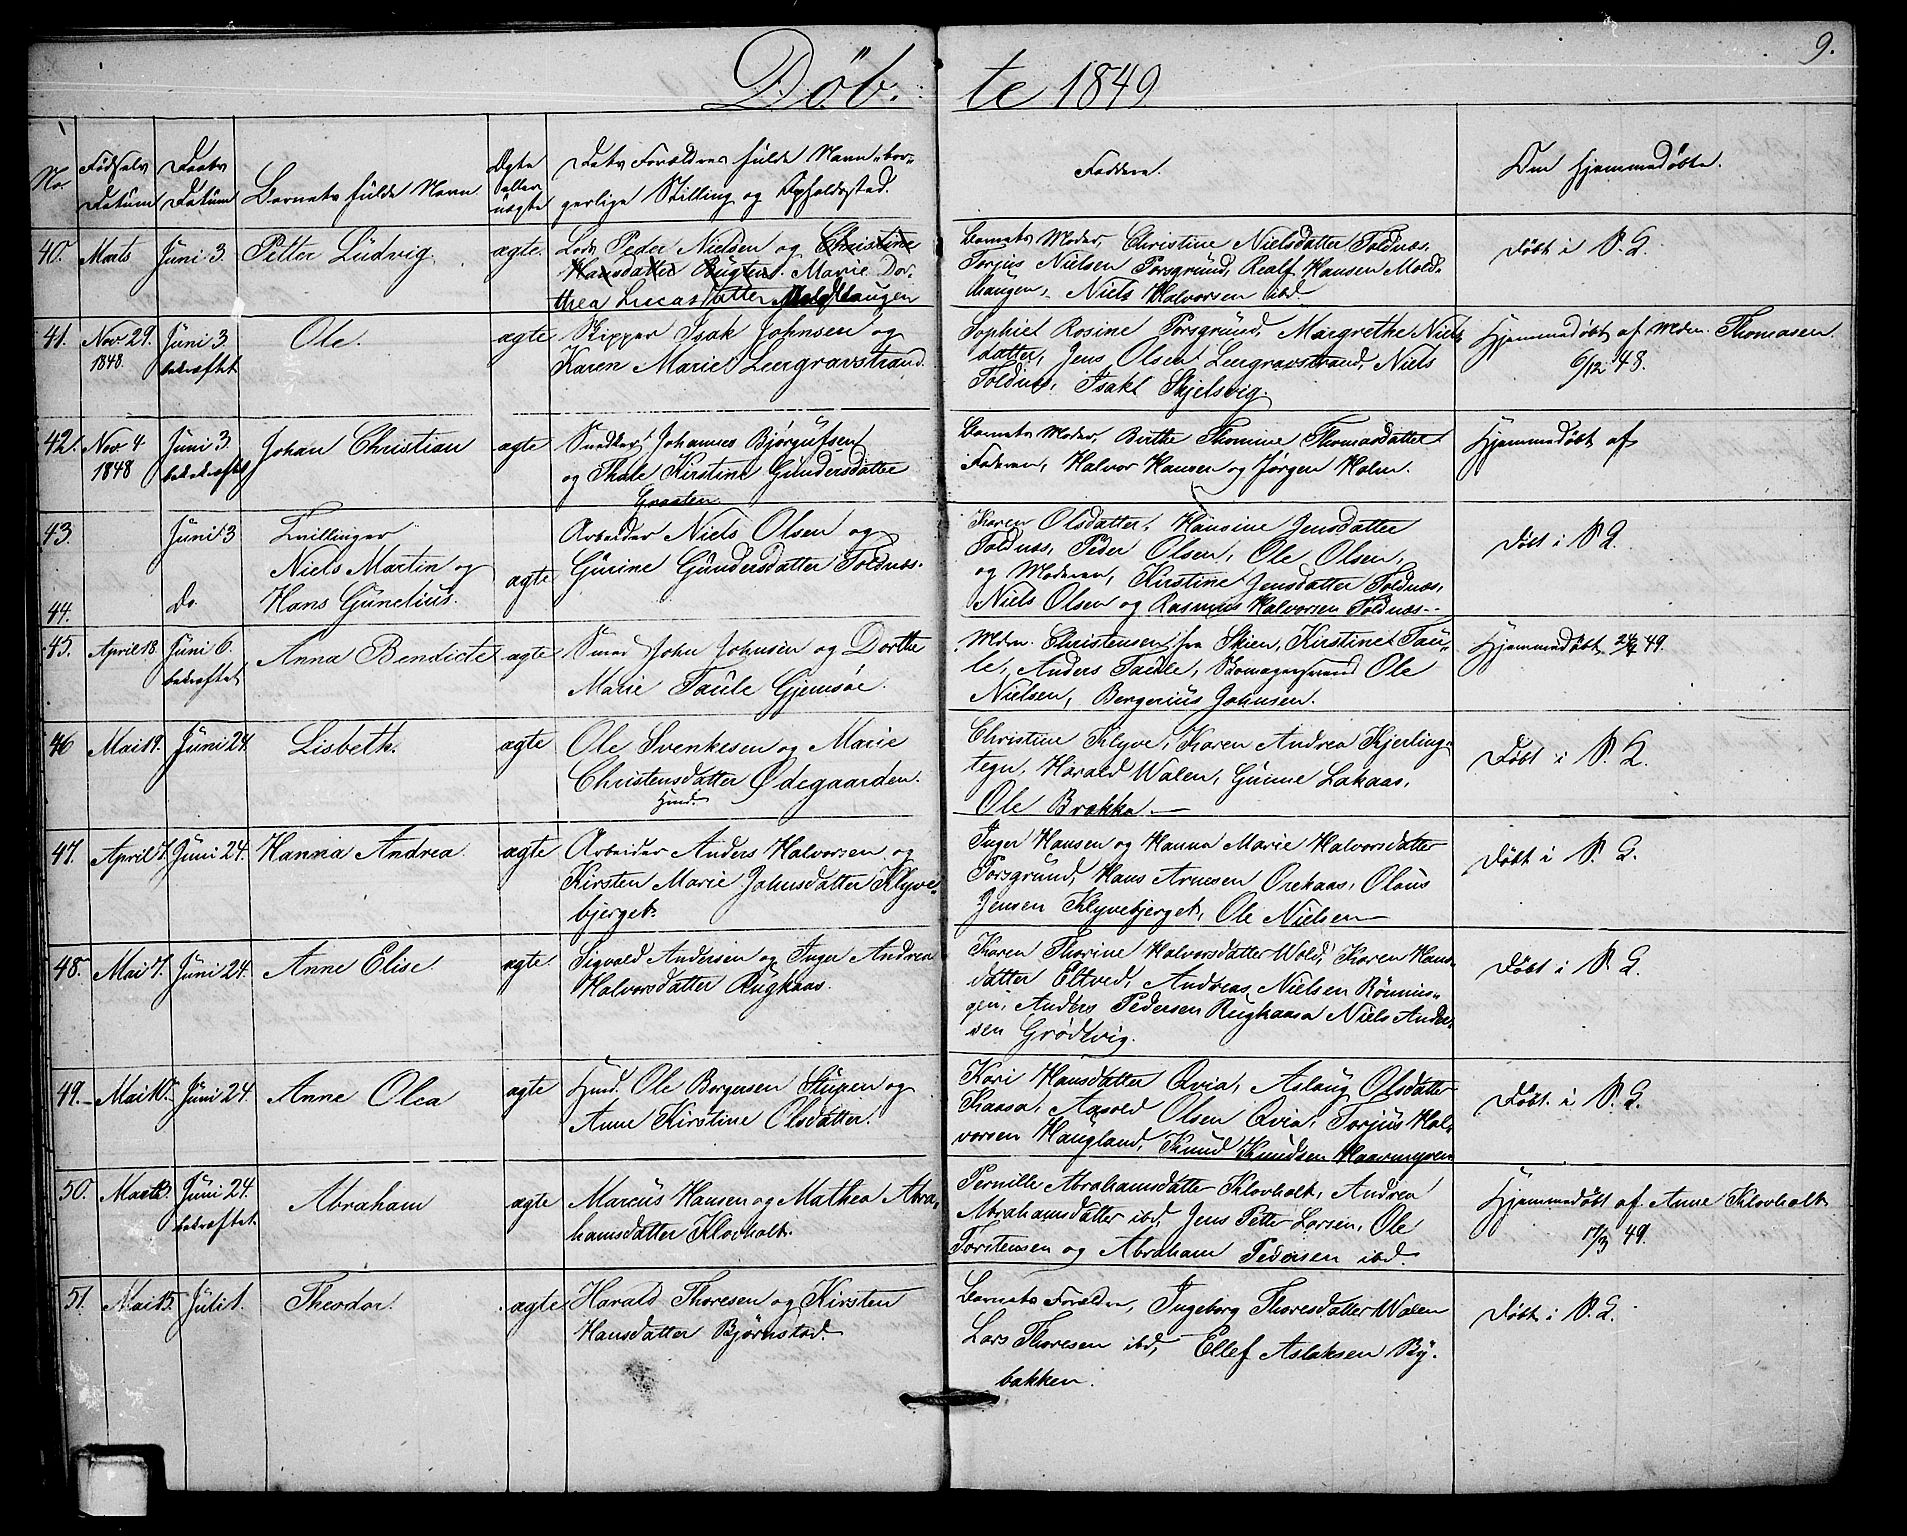 Döb. te 1849
9.
No.
Fødsels Datum
Daabs Datum
Barnets fulde Navn.
Ægte eller uægte
Dets Forældres fulde Navn, bor-
gerlige Stilling og Opholdssted.
Faddere.
Om hjemmedøbt.
40. Marts Juni 3. Petter Ludvig. ægte. Lods Peder Nielsen og Christine
Hansdatter Marie Dor-
thea Lucasdatter Moldhaugen
Barnets Moder, Christine Nielsdatter Toldnæs,
Torjus Nielsen Porsgrund, Realf Hansen Mold-
haugen, Niels Halvorsen ibd
Døbt i P. G.
41. Nov 29. Juni 3. Ole. ægte Skipper Isak Johnsen og
1848. bekræftet Karen Marie Leergravstrand.
Sophie Rosine Porsgrund, Margrethe Niels-
datter, Jens Olsen Leergravstrand, Niels
Toldnæs, Isak Skjelsvig.
Hjemmedøbt af Mdm. Thomasen
6/12 48.
42. Nov 4 Juni 3 Johan Christian ægte Snedker Johannes Bjørgufsen
1848 bekræftet og Thale Kirstine Gundersdatter
Graaten
Barnets Moder, Birthe Thomine Thomasdatter
Faderen, Halvor Hansen og Jørgen Holm.
Hjemmedøbt af
43. Juni 3 Tvillinger Arbeider Niels Olsen og
Niels Martin og ægte Gurine Gundersdatter Toldnæs.
44. Do. Hans Gunelius.
Karen Olsdatter, Hansine Jensdatter
Toldnæs, Peder Olsen, Ole Olsen,
og Moderen, Kirstine Jensdatter Toldnæs,
Niels Olsen og Rasmus Halvorsen Toldnæs.
Døbt i P. G.
45. April 18. Juni 6. Anna Bendicte ægte Smed John Johnsen og Dorthe
bekræftet Marie Taule Gjemsøe.
Mdm. Christensen fra Skien, Kirstine Tau-
le, Anders Taule, Skomagersvend Ole
Nielsen, Bergerius Johnsen.
Hjemmedøbt 24/4 49.
46 Mai 19. Juni 24. Lisbeth. ægte Ole Svenkesen og Marie
Christensdatter Ødegaarden.
Husd.
Christine Klyve, Karen Andrea Kjerling-
tegn, Harald Walen, Gunne Lakaas,
Ole Brakka.
Døbt i P. G.
47. April 7. Juni 24. Hanna Andrea. ægte Arbeider Anders Halvorsen og
Kirsten Marie Johnsdatter Klyve-
bjerget.
Inger Hansen og Hanna Marie Halvorsdatter
Porsgrund, Hans Arnesen Orekaas, Olaus
Jensen Klyvebjerget, Ole Nielsen
Døbt i P. G.
48. Mai 7. Juni 24. Anne Elise. ægte. Sigvald Andersen og Inger Andrea
Halvorsdatter Rugkaas.
Karen Thorine Halvorsdatter Wold, Karen Hans-
datter Eltved, Andreas Nielsen Rönnin-
gen, Anders Pedersen Rugkaasa Niels Ander-
sen Grödtvig.
Døbt i P. G.
49. Mai 10. Juni 24 Anne Olea ægte Husd. Ole Borgersen Stupen og
Anne Kirstine Olsdatter.
Kari Hansdatter Qvia, Aslaug Olsdatter
Kaasa, Aavold Olsen Qvia, Torjus Hal-
vorsen Haugland, Knud Knudsen Haavemyren
Døbt i P. G.
50. Marts Juni 24. Abraham ægte Marcus Hansen og Mathea Abra-
bekræftet hamsdatter Klovholt.
Pernille Abrahamsdatter Klovholt, Andrea
Abrahamsdatter ibd, Jens Petter Larsen, Ole
Torstensen og Abraham Pedersen ibd.
Hjemmedøbt af Anne Klovholt
17/3 49.
51. Mai 15. Juli 1. Theodor. ægte Harald Thoresen og Kirsten
Hansdatter Bjørnstad
Barnets Forældre, Ingeborg Thoresdatter Walen
Lars Thoresen ibd, Ellef Aslaksen By-
bakken.
Døbt i P. G.